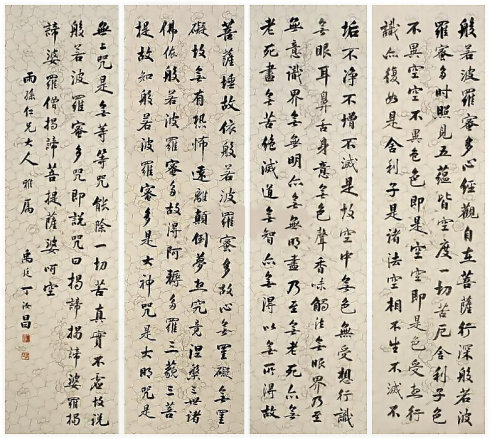 般若波羅蜜多心經觀自在菩薩行深般若波
羅蜜多時照見五蘊皆空度一切苦厄舍利子色
不異空空不異色色即是空空即是色受想行
識亦復如是舍利子是諸法空相不生不滅不
垢不净不增不減是故空中無色無受想行識
無眼耳鼻舌身意無色聲香味觸法無眼界乃至
無意識界無無明亦無無明盡乃至無老死亦無
老死盡無苦滅道無智亦無得以無所得故
菩薩埵故依般若波羅蜜多故心無罣礙無罣
礙故無有恐怖遠離顛倒夢想究竟涅槃三世諸
佛依般若波羅蜜多故得阿耨多羅三藐三菩
提故知般若波羅蜜多是大神咒是大明咒是
無上咒是無等等咒能除一切苦真實不虛故說
般若波羅蜜多咒即說咒曰揭諦揭諦婆羅揭
諦婆羅僧揭諦菩提薩婆呵
雨孫仁兄大人雅屬
禹廷丁汝昌